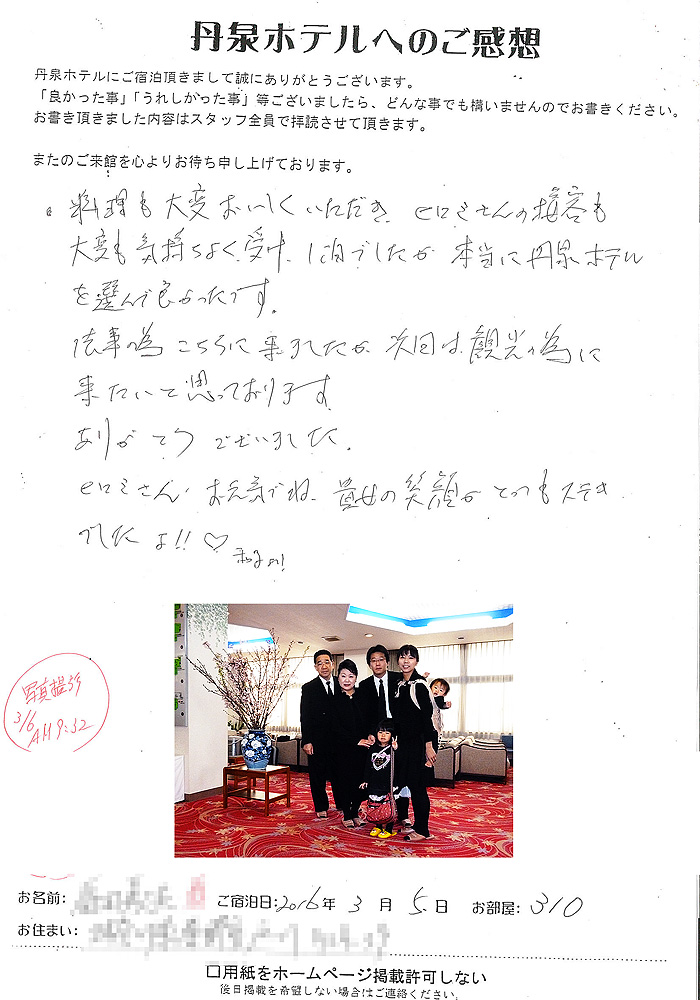 丹泉ホテルへのご感想
丹泉ホテルにご宿泊頂きまして誠にありがとうございます。
「良かった事」「うれしかった事」等ございましたら、どんな事でも構いませんのでお書きください。
お書き頂きました内容はスタッフ全員で拝読させて頂きます。
またのご来館を心よりお待ち申し上げております。
料理も大変おいしくいただき、ヒロミさんの接客も
大変も気持ちよく受け、1泊でしたが本当に丹泉ホテル
を選んで良かったです。
法事の為こちらに来ましたが次回は観光の為に
来たいと思っております
ありがとうございました。
ヒロミさん お元気でね、貴女の笑顔がとってもステキ
でしたよ!!♡
写真撮影
3/6
AM9:32
お名前: ご宿泊日:2016年3月5日 お部屋:310
お住まい:
□用紙をホームページ掲載許可しない
後日掲載を希望しない場合はご連絡ください。